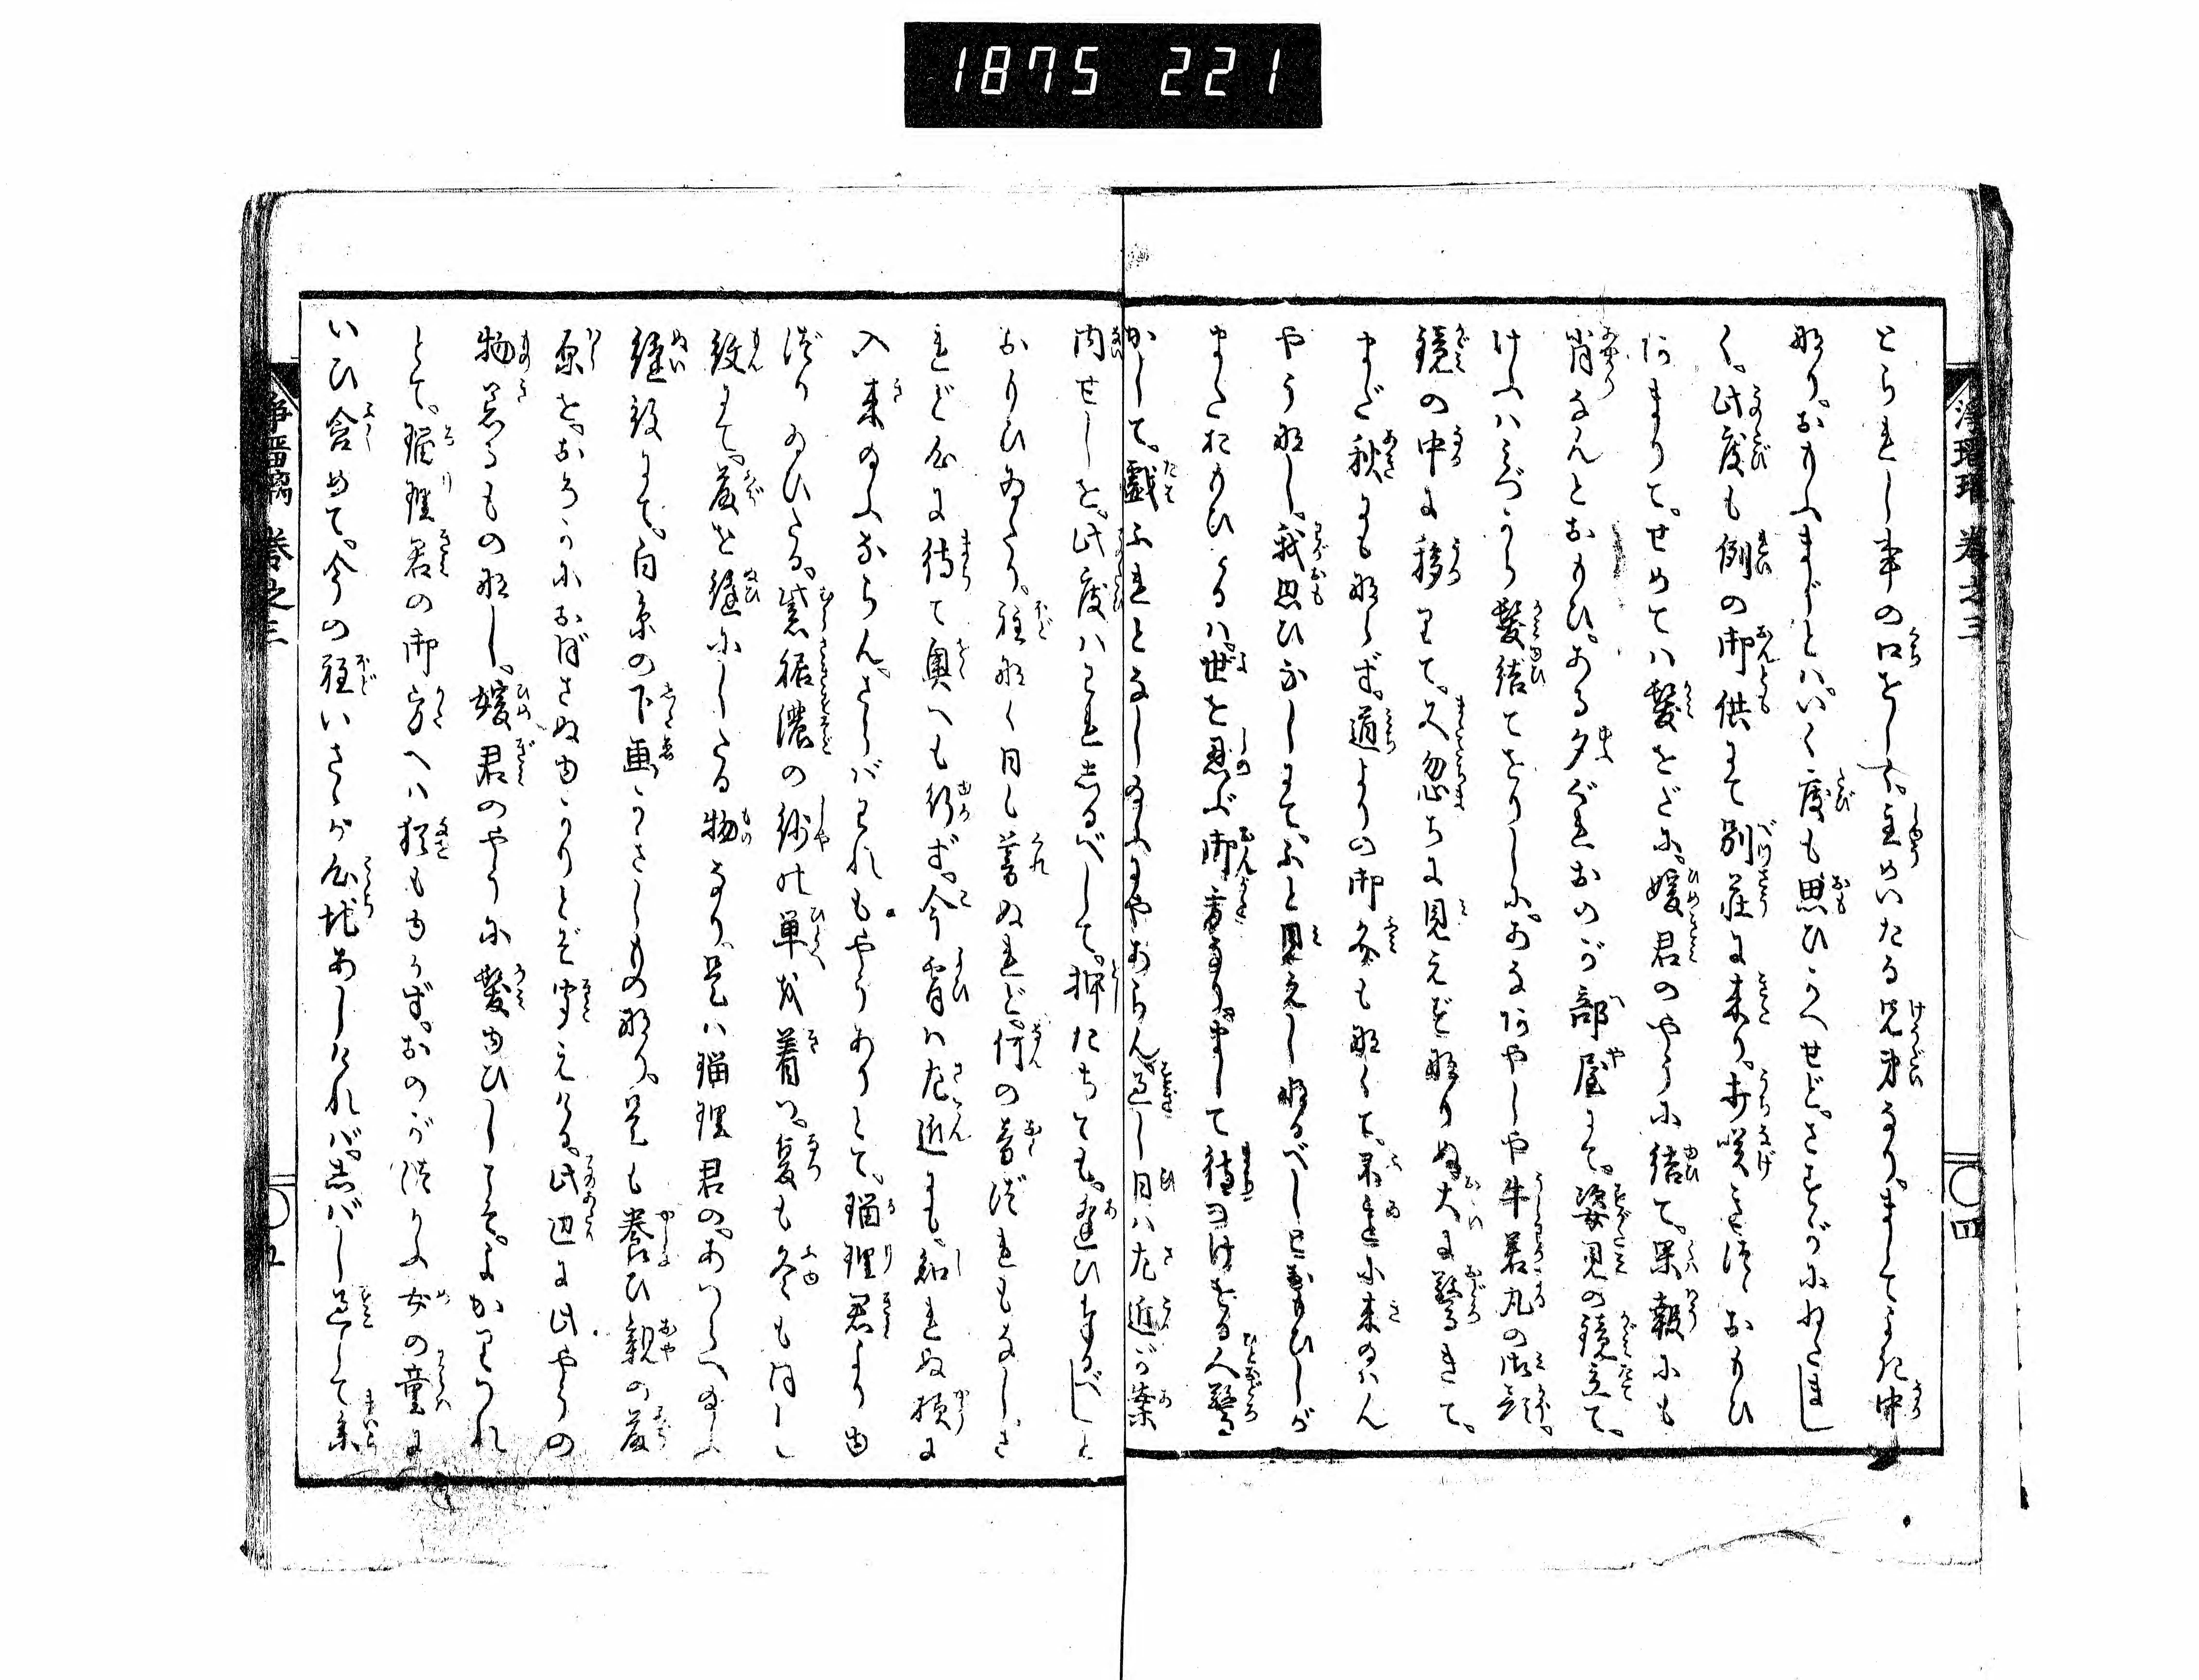 1875 221
浄瑠璃 巻之三 四
とられし事の口をしさ。主めいたる兄弟なり。ましてよき中
なり。おもふまじとハ。いく度も思ひかへせど。さすがにねたまし
く。此度も例の御供にて別荘に来り。打咲ミ居つゝおもひ
あまりて。せめてハ髪をだに。媛君のやうに結て。果報にも
肖なんとおもひ。ある夕ぐれおのが部屋にて。姿見の鏡立て。
けふハミづから髪結てをりしに。あなあやしや牛若丸の御顔。
鏡の中に移りて。又忽ちに見えず成りぬ。大に驚きて。
まだ秋にも成らず。道よりの御文も無くて。君まさに来のハん
やう無し。我思ひなしにて。ふと見えし成るべしとおもひしが
またおもひよるハ。世を忍ぶ御身なり。まして待まうけをる人驚
かして。戯ふれとなしのふにやあらん。過し日ハ左近が案
内せしを。此度ハこれしるべして。押たちても。逢ひなるべしと
おりひゐたり。程なく日も暮ぬれど。何の音づれもなし。さ
れど后に待て奥へも行ず。今宵ハ左近にも。知れぬ様に
入来のふならん。さらバそれもやうありとて。瑠理君より由
づりのひたる。紫裾濃の紗の単衣着つ。夏も冬も同じ
紋にて。菱を縫にしたる物なり。是ハ瑠理君の。あつらへのふ
縫紋にて。白糸の下画かさしもの成り。是も養ひ親の菱
原を。おろかにおぼさぬ由かりとぞ聞えける。此辺に此やうの
物着るもの無し。媛君のやうに髪ゆひしこそ。よかりつれ
とて。瑠理君の御方へハ猶もゆかず。おのが供かふ女の童に
いひ含めて。今の程いさゝか心地あしけれバ。しバし過して参
浄瑠璃 巻之三 五